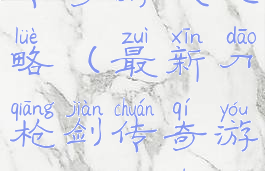 lüè zuì xīn dāo
略(最新刀
qiāng jiàn chuán qí yóu
枪剑传奇游